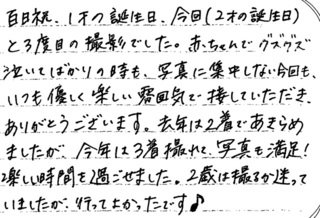 百日祝、1才の誕生日、今回(2才の誕生日)
と3度目の撮影でした。赤ちゃんでグズグズ
泣いてばかりの時も、写真に集中しない今回も、
いつも優しく楽しい雰囲気で接していただき、
ありがとうございます。去年は2着であきらめ
ましたが、今年は3着撮れて、写真も満足!
楽しい時間を過ごせました。2歳は撮るか迷って
いましたが、行ってよかったです♪